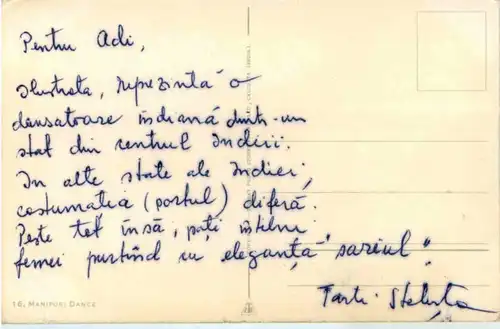 Pentru Adi,
Ilustrata, reprezintă o
dansatoare indiană dintr-un
stat din centrul Indiei.
In alte state ale Indiei,
costumatia (portul) diferă.
Peste tot însă, poți întîlni
femei purtînd cu eleganță "sariul".
Tanti Steluța
16, MANIPURI DANCE